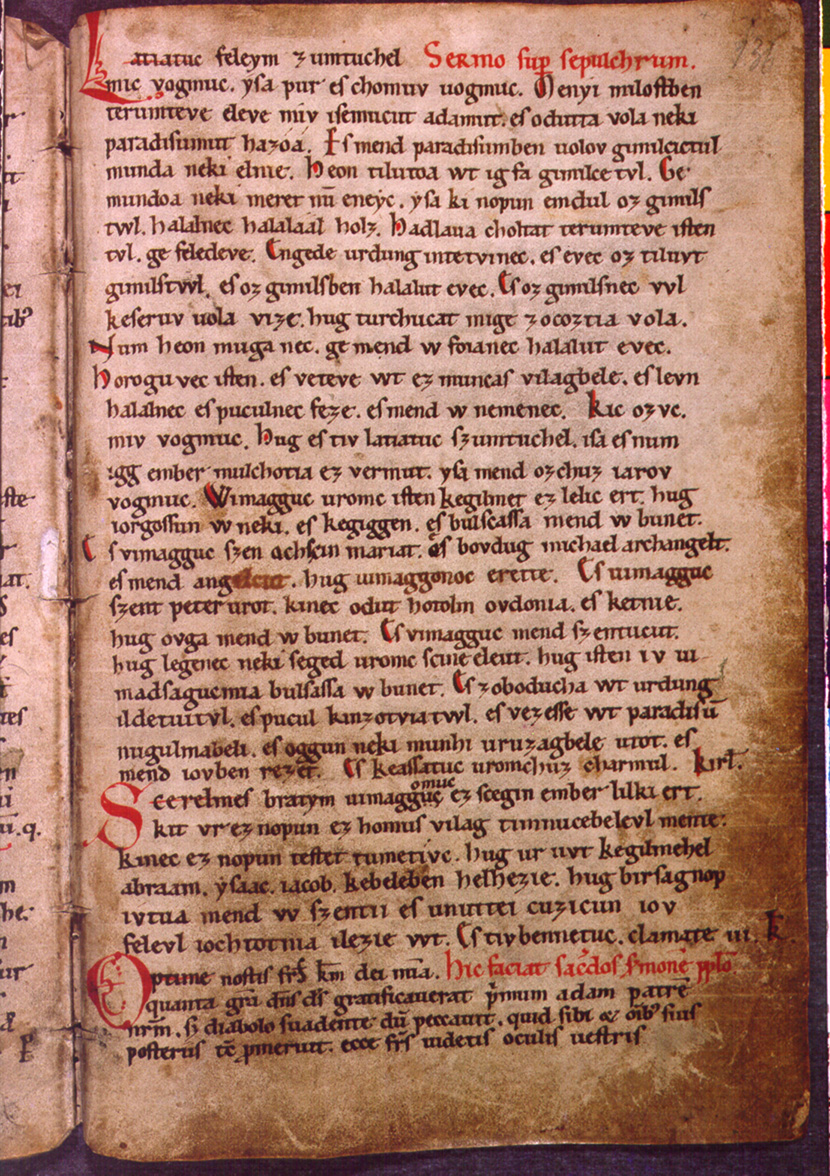 Latiatuc feleym zumtuchel Sermo sup sepulchrum.
mic vogmuc. yſa pur eſ chomuv uogmuc. Menyi miloſtben
terumteve eleve miv iſemucut adamut. eſ odutta vola neki
paradiſumut hazoa. Eſ mend paradiſumben uolov gimilcictul
munda neki elnie. Heon tilutoa wt ig fa gimilce tvl. Ge
mundoa neki meret nū eneyc. yſa ki nopun emdul oz gimilſ
twl. halalnec halalaal holz. Hadlaua choltat terumteve iſten
tvl. ge feledeve. Engede urdung intetvinec. eſ evec oz tiluvt
gimilſtvvl. eſ oz gimilſben halalut evec. Eſ oz gimilſnec vvl
keſeruv uola vize. hug turchucat mige zocoztia vola.
Num heon muga nec. ge mend w foianec halalut evec.
Horoguvec iſten. eſ veteve wt ez muncaſ vilagbele. eſ levn
halalnec eſ puculnec feze. eſ mend w nemenec. Kic ozvc.
miv vogmuc. Hug eſ tiv latiatuc ſzumtuchel. iſa eſ num
igg ember mulchotia ez vermut. yſa mend ozchuz iarov
vogmuc. Wimagguc uromc iſten kegilmet ez lelic ert. hug
iorgoſſun w neki. eſ kegiggen. eſ bulſcaſſa mend w bunet.
Eſ vimagguc ſzen achſcin mariat. eſ bovdug michael archangelt.
eſ mend angelcut. hug uimaggonoc erette. Eſ uimagguc
ſzent peter urot. kinec odut hotolm ovdonia. eſ ketnie.
hug ovga mend w bunet. Eſ vimagguc mend ſzentucut.
hug legenec neki ſeged uromc ſcine eleut. hug iſten iv ui
madſaguc mia bulſaſſa w bunet. Eſ zoboducha wt urdung
ildetuitvl. eſ pucul kinzotviatwl. eſ vezeſſe wt paradiſū
nugulmabeli. eſ oggun neki munhi uruzagbele utot. eſ
mend iovben rezet. Eſ keaſſatuc uromchuz charmul. kirl.
Scerelmes bratym uimaggomuc ez ſcegin ember lilki ert.
kit vr ez nopun ez homuſ vilag timnucebelevl mente.
kinec ez nopun teſtet tumetivc. hug ur uvt kegilmehel
abraam. yſaac. iacob. kebeleben helhezie. hug birſagnop
ivtua mend w ſzentii eſ unuttei cuzicun iov
felevl iochtotnia ilezie wt. Eſ tivbennetuc. clamate iii. k.
Optime noſtiſ frſ km dei mīa. Hic faciat ſacdos ſmonē pplo
quanta grā dns ds gratificauerat pmum adam patrē
nrm. ſ; diabolo ſuadente dū peccauit. quid ſibi & oib' ſuis
poſteriſ tē pmeruit. ecce frſ uidetis oculis ueſtris